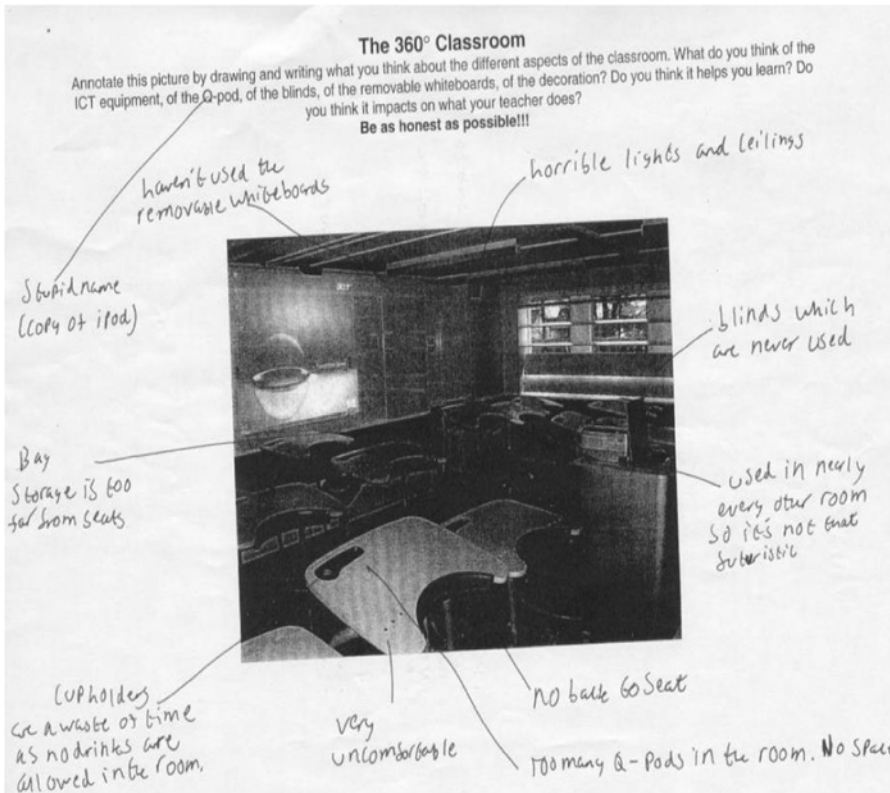 The 360° Classroom
Annotate this picture by drawing and writing what you think about the different aspects of the classroom. What do you think of the
ICT equipment, of the Q-pod, of the blinds, of the removable whiteboards, of the decoration? Do you think it helps you learn? Do
you think it impacts on what your teacher does?
Be as honest as possible!!!
haven't used the
removable whiteboards
horrible lights and ceilings
Stupid name
(copy of ipod)
blinds which
are never used
Bag
Storage is too
far from seats
used in nearly
every other room
so it's not that
futeristic
Cupholders
are a waste of time
as no drinks are
allowed in the room.
very
uncomfortable
no back to seat
Too many Q-Pods in the room. No